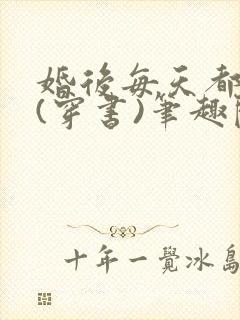 婚後每天都
(穿書)筆趣
十年一覺冰島